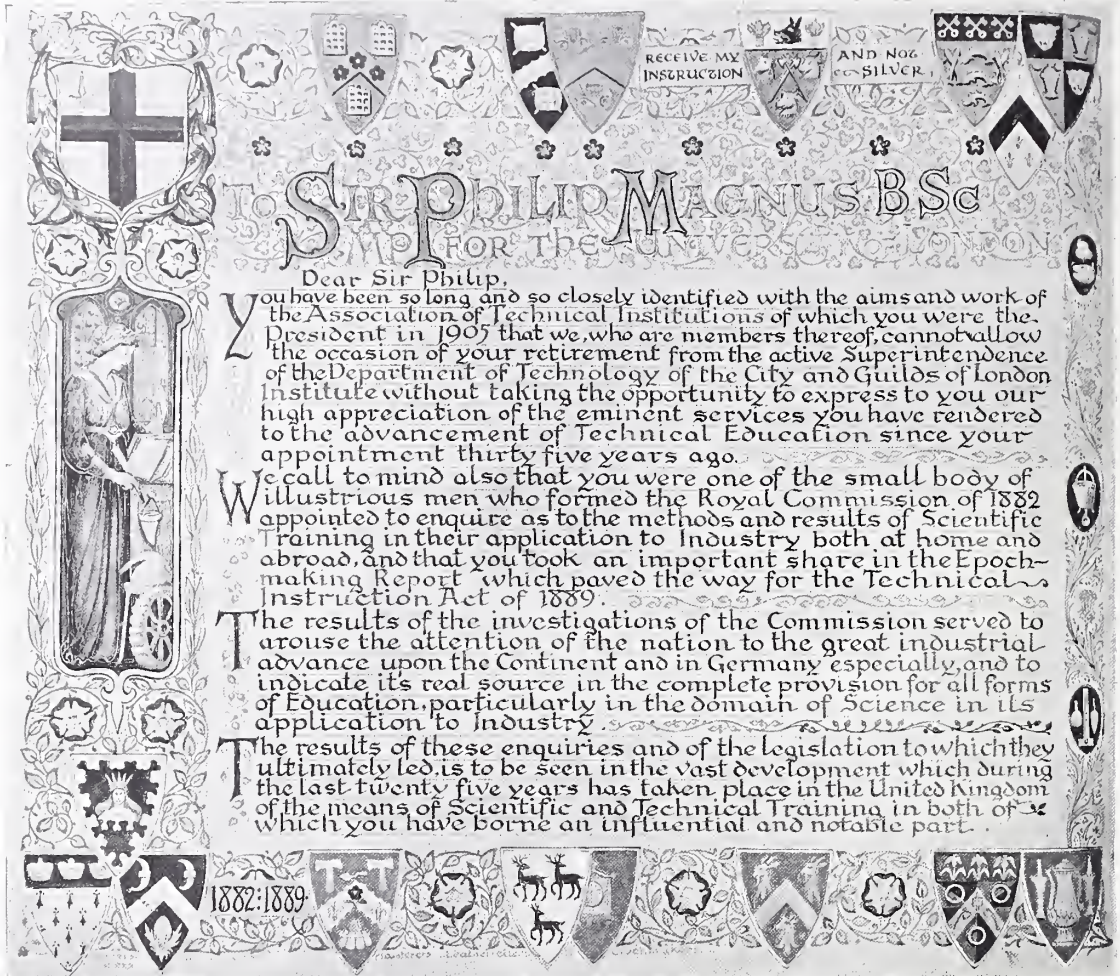 RECEIVE MY
INSTRUCTION
AND NOT
SILVER,
TO SIR PHILIP MAGNUS: BSc
MP FOR THE UNIVERSITY OF LONDON
Dear Sir Philip,
You have been so long and so closely identified with the aims and work of
the Association of Technical Institutions of which you were the
President in 1905 that we, who are members thereof, cannot allow
the occasion of your retirement from the active Superintendence
of the Department of Technology of the City and Guilds of London
Institute without taking the opportunity to express to you our
high appreciation of the eminent services you have rendered
to the advancement of Technical Education since your
appointment thirty five years ago.
We call to mind also that you were one of the small body of
illustrious men who formed the Royal Commission of 1882
appointed to enquire as to the methods and results of Scientific
Training in their application to Industry both at home and
abroad, and that you took an important share in the Epoch-
making Report which paved the way for the Technical
Instruction Act of 1889.
The results of the investigations of the Commission served to
arouse the attention of the nation to the great industrial
advance upon the Continent and in Germany especially, and to
indicate it's real source in the complete provision for all forms
of Education, particularly in the domain of Science in its
application to Industry.
The results of these enquiries and of the legislation to which they
ultimately led, is to be seen in the vast development which during
the last twenty five years has taken place in the United Kingdom
of the means of Scientific and Technical Training in both of
which you have borne an influential and notable part.
1882:1889